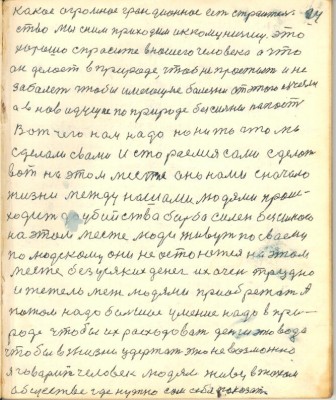 какое огромное грандионное ест строител 24
ство мы сним приходим икному низму, это
хорошо спросите вношего человека а что
он делает в природе, чтоб не простыть и не
заболет чтобы имеющую болезни от этого
а в нов идущие по природе бессилны попасть
Вот чего нам надо понить это мы
сделали свами И стораемся сами сделат
вот на этом месте оно нами сначало
жизни между нашами людями проис-
ходит до убийства борба силен безсилого
на этом месте люди живут по своему
по людкому они не остоются на этом
месте безусяких денег их очен трудно
имет между людями приобретат А
потом надо болшое умение надо в при-
роде чтобы их расходоват денги это вода
чтобы в жизни удержат это не возможно
я говорит человек людям живу в таком
обществе где нужно сам себя показат